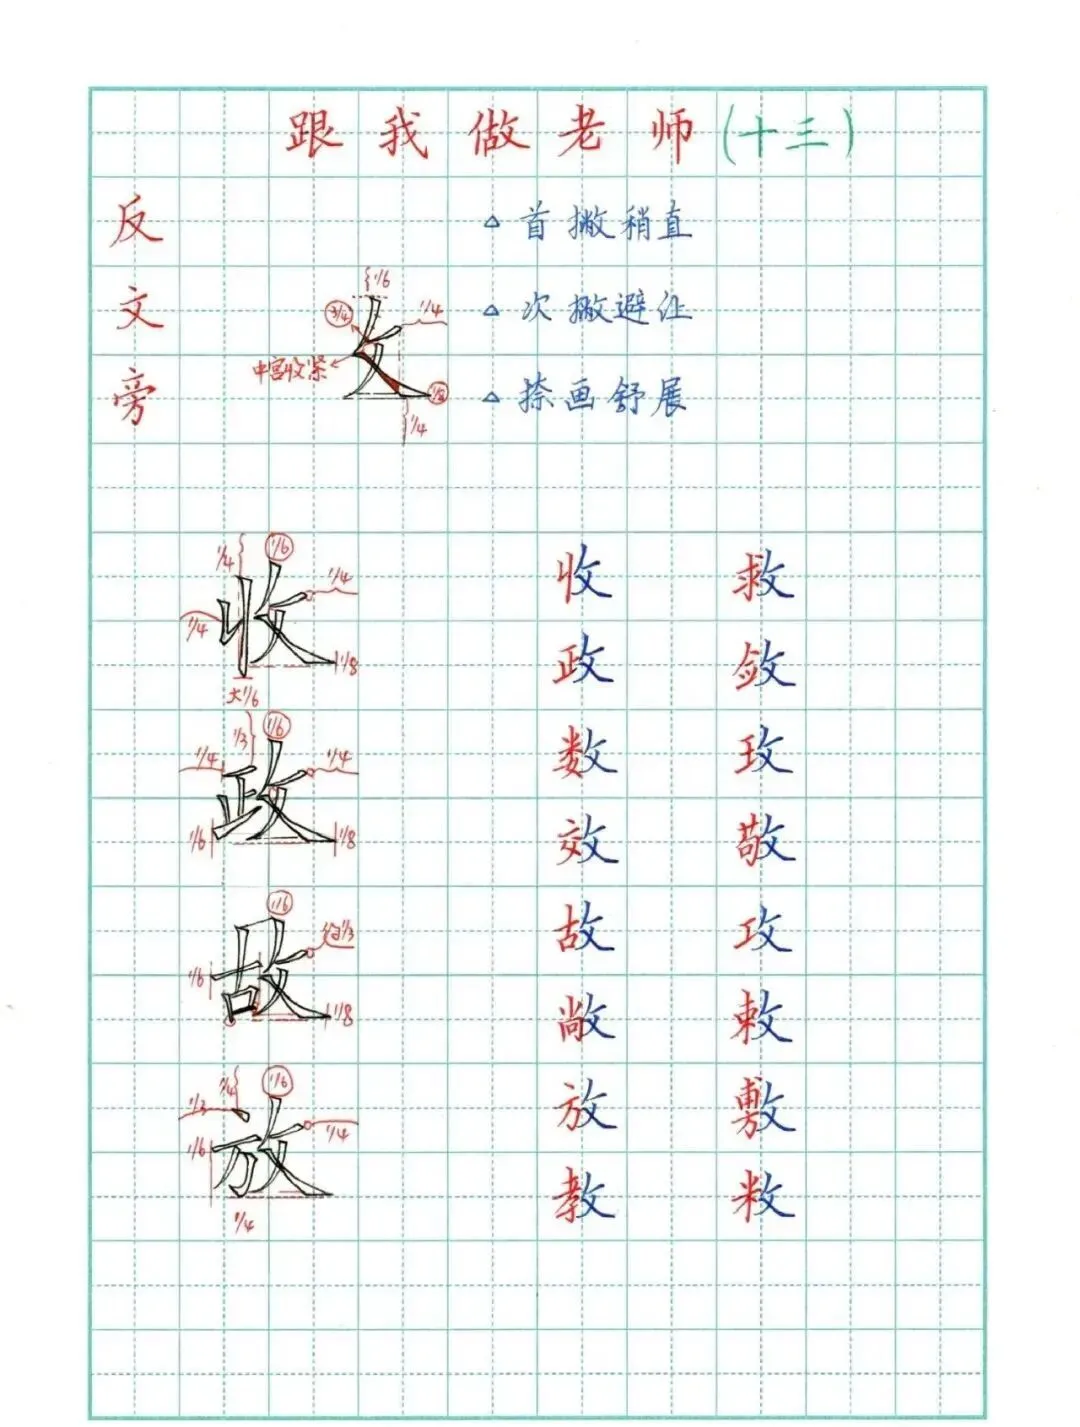 跟我做老师(十三)
反文旁
△首撇稍直
△次撇避让
△捺画舒展
1/6
3/4
1/4
中宫收紧
1/8
1/4
1/4
1/6
1/4
1/4
收
1/8
大1/6
收 救
政 敛
1/3
1/6
1/4
1/4
政
1/6
1/8
数 玫
效 敬
1/6
1/3
1/6
故
1/8
故 攻
敞 敕
1/4
1/6
1/3
1/4
1/6
放
1/4
放 敷
教 敉